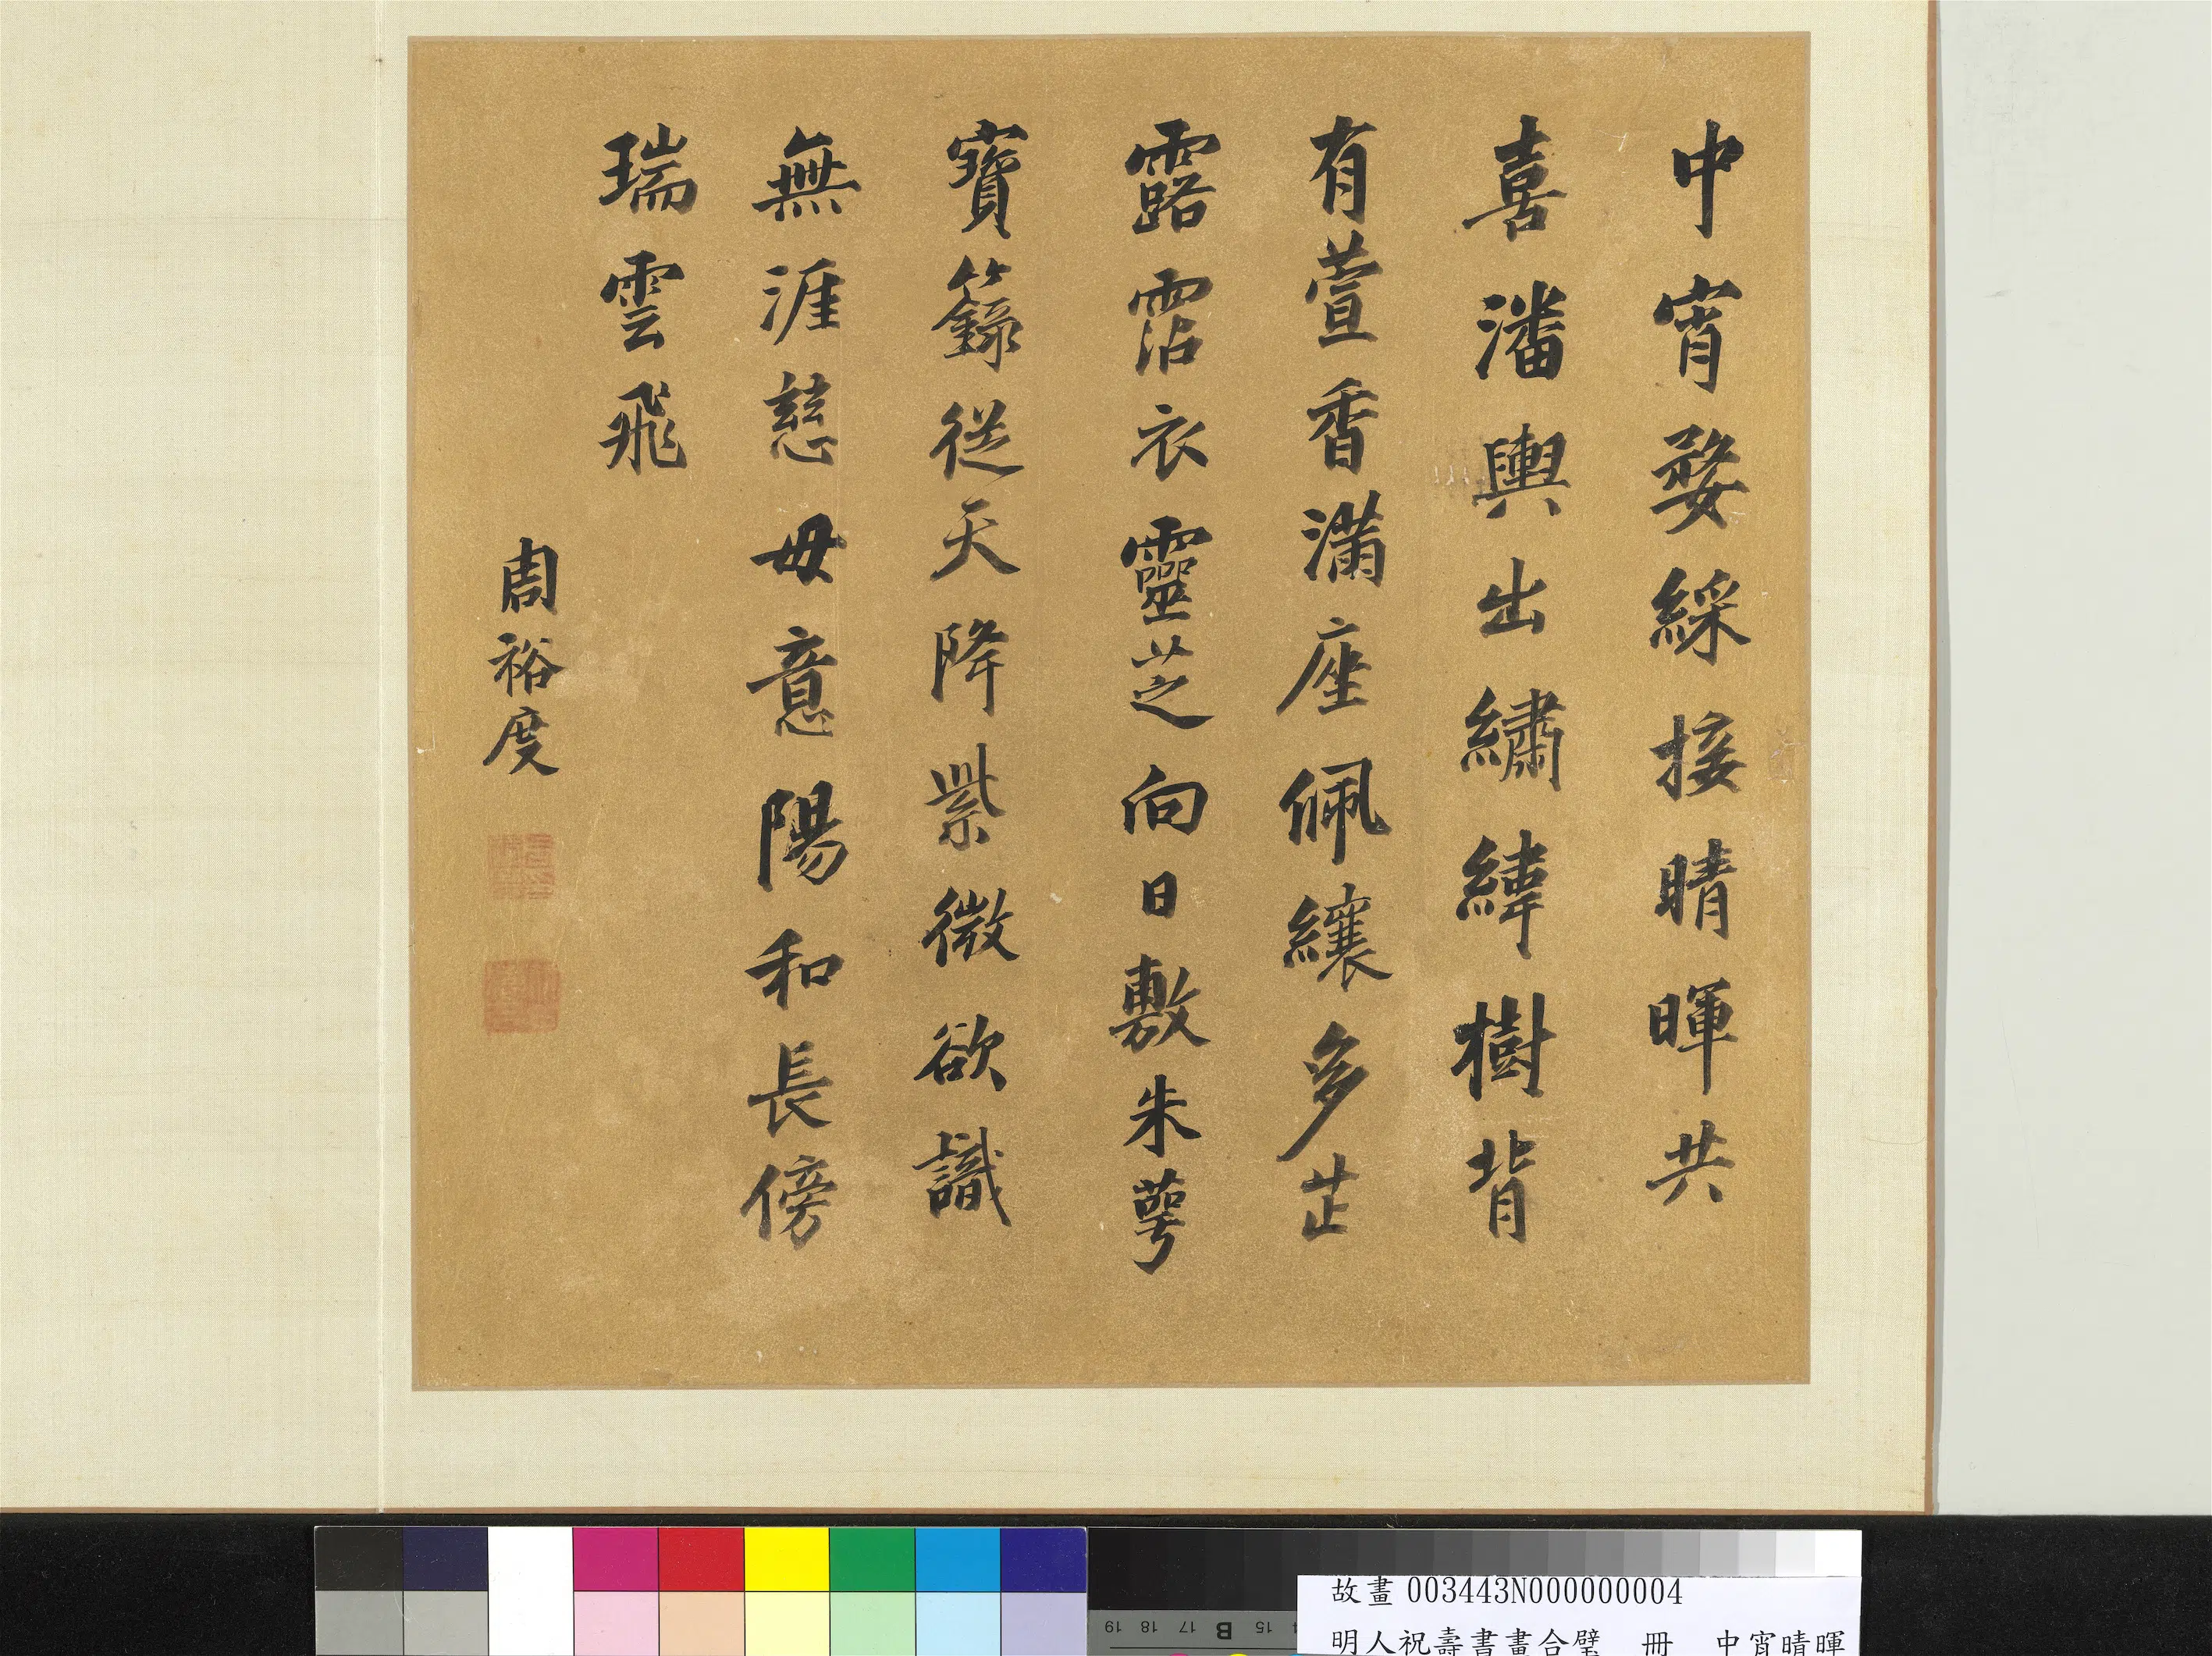 中宵婺綵接晴暉共
喜潘輿出繡緯樹背
有萱香滿座佩纕多芷
露霑衣靈芝向日敷朱萼
寶籙從天降紫微欲識
無涯慈母意陽和長傍
瑞雲飛
周裕度
故畫 003443N000000004
明人祝壽書畫合璧 冊 中宵晴暉
19 18 17 B 15